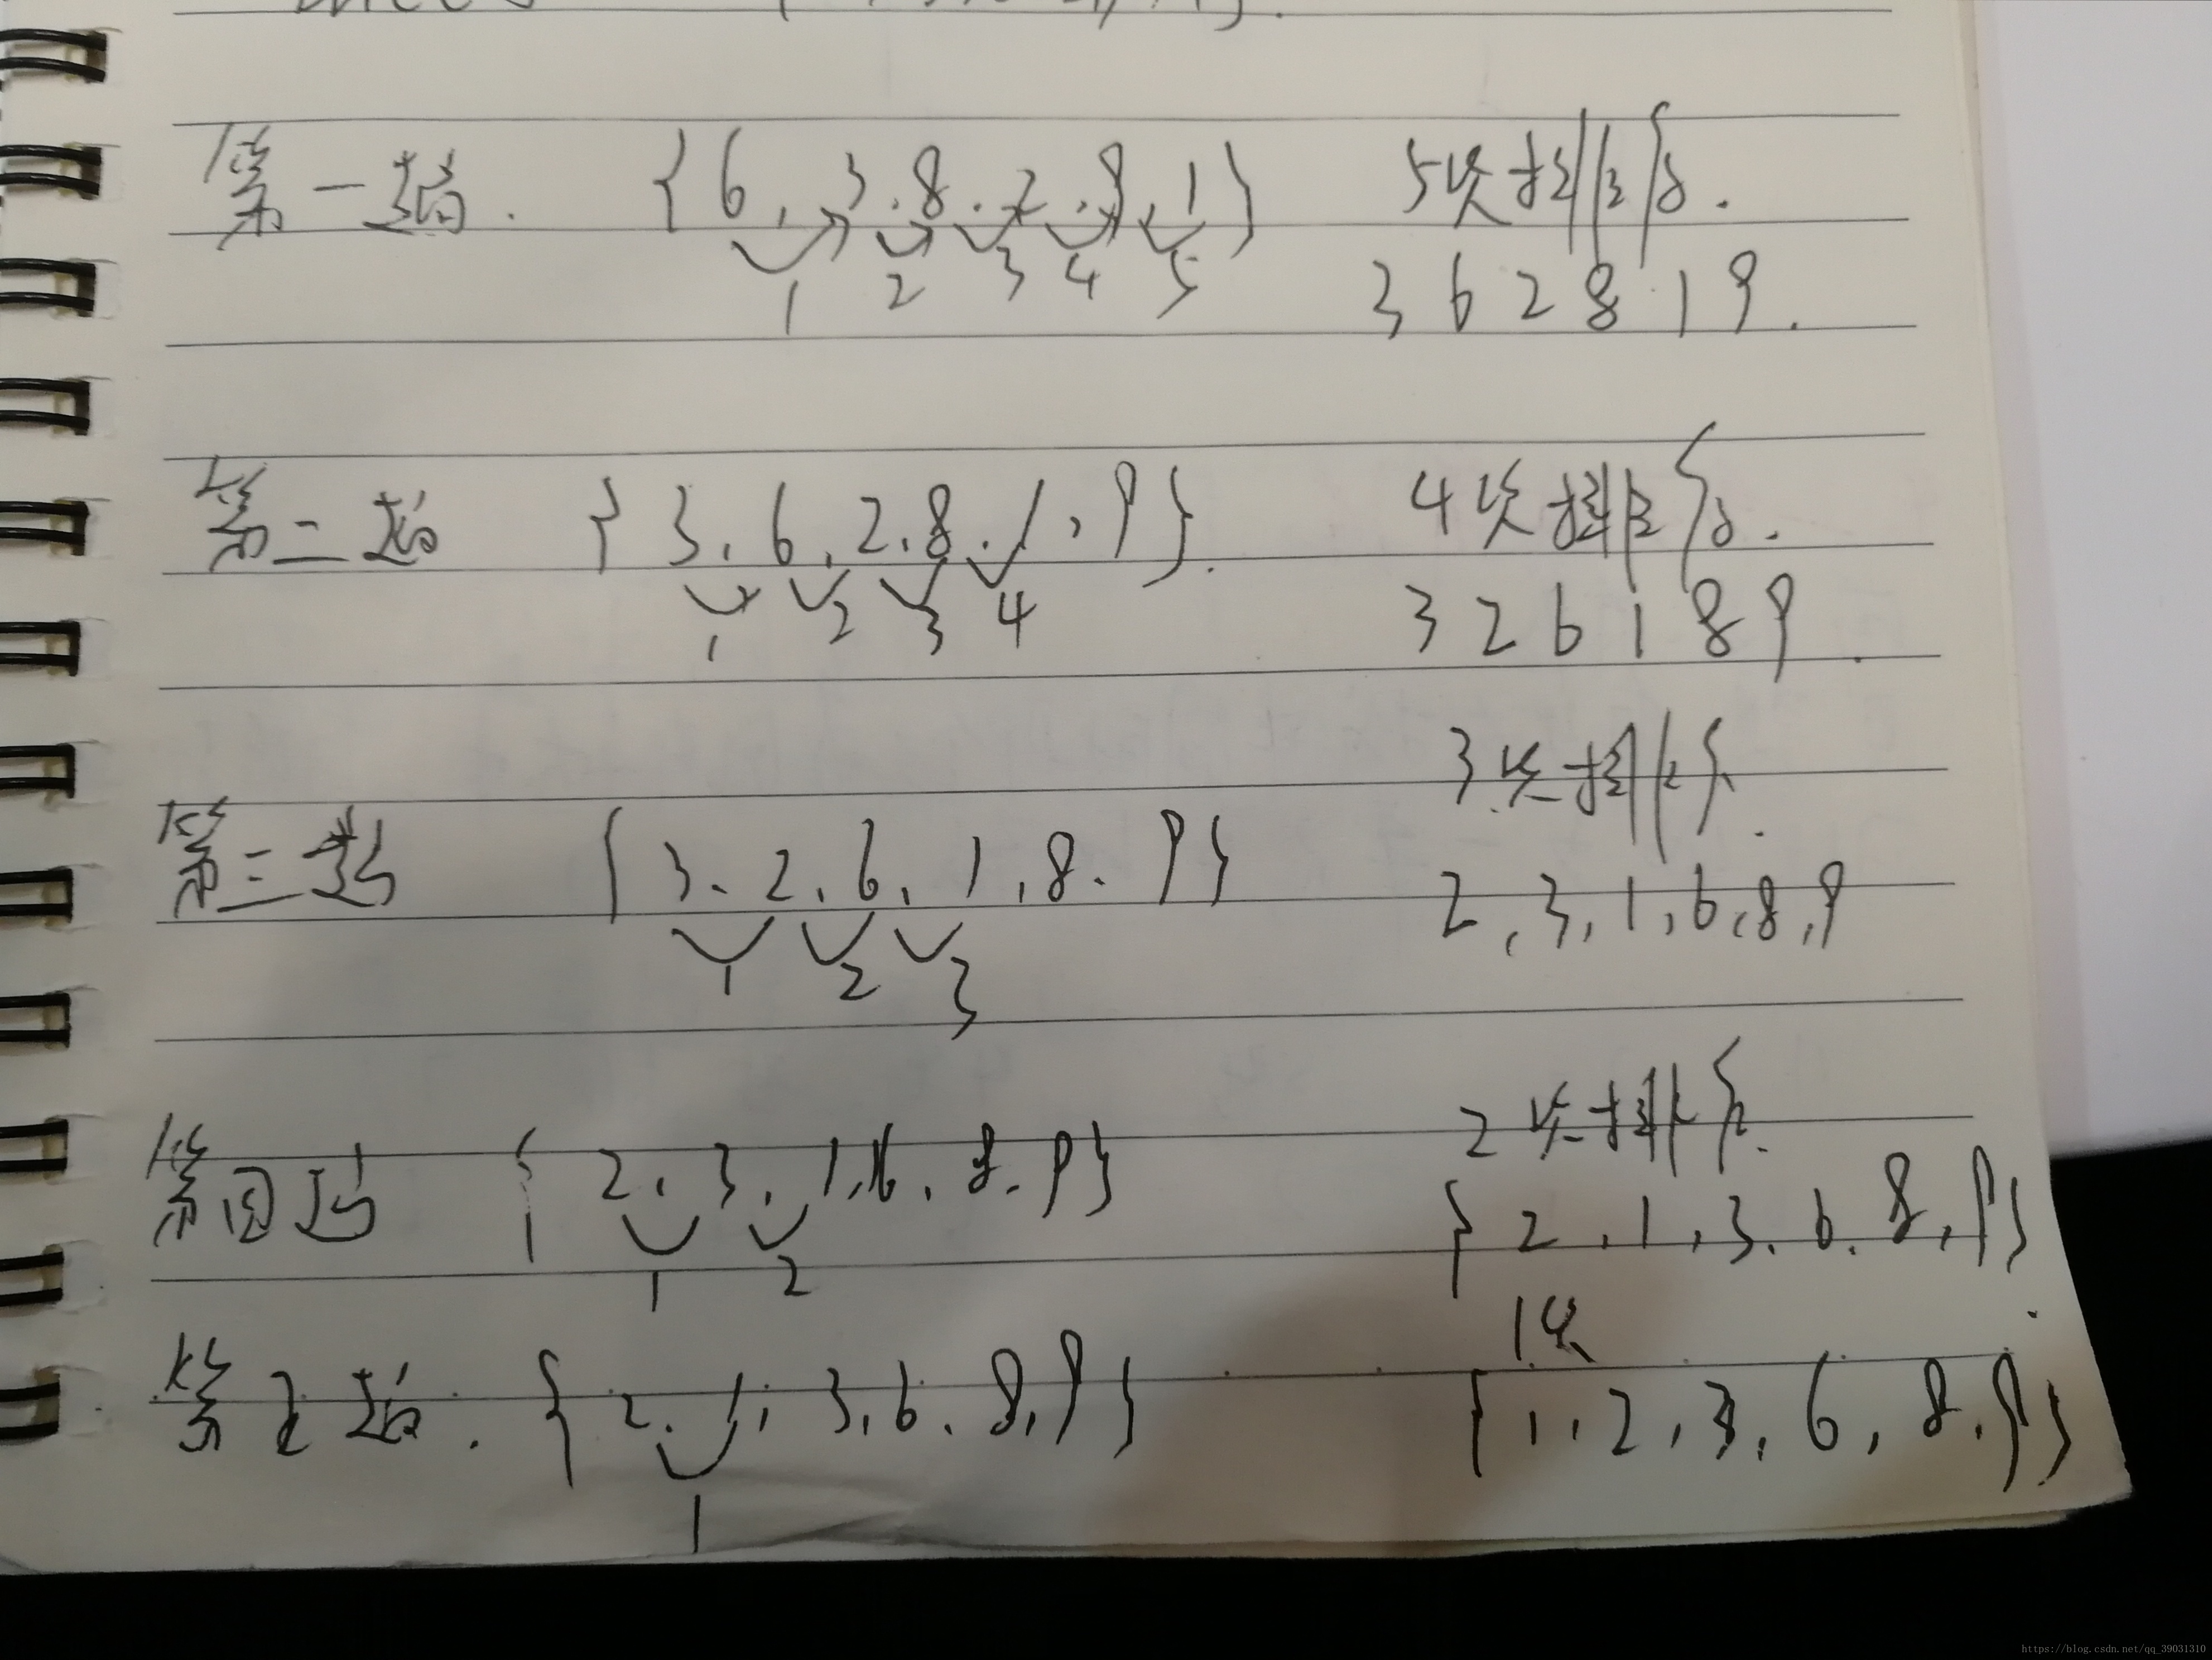 第一趟. {6, 3, 8, 2, 9, 1} 5次排序.
1 2 3 4 5
3 6 2 8 1 9.
第二趟 {3, 6, 2, 8, 1, 9}. 4次排序.
1 2 3 4
3 2 6 1 8 9
3次排序.
第三趟 {3, 2, 6, 1, 8, 9}
2, 3, 1, 6, 8, 9
1 2 3
2次排序.
第四趟 {2, 3, 1, 6, 8, 9}
{2, 1, 3, 6, 8, 9}
1 2
1次
第五趟. {2, 1, 3, 6, 8, 9} {1, 2, 3, 6, 8, 9}
1
https://blog.csdn.net/qq_39031310